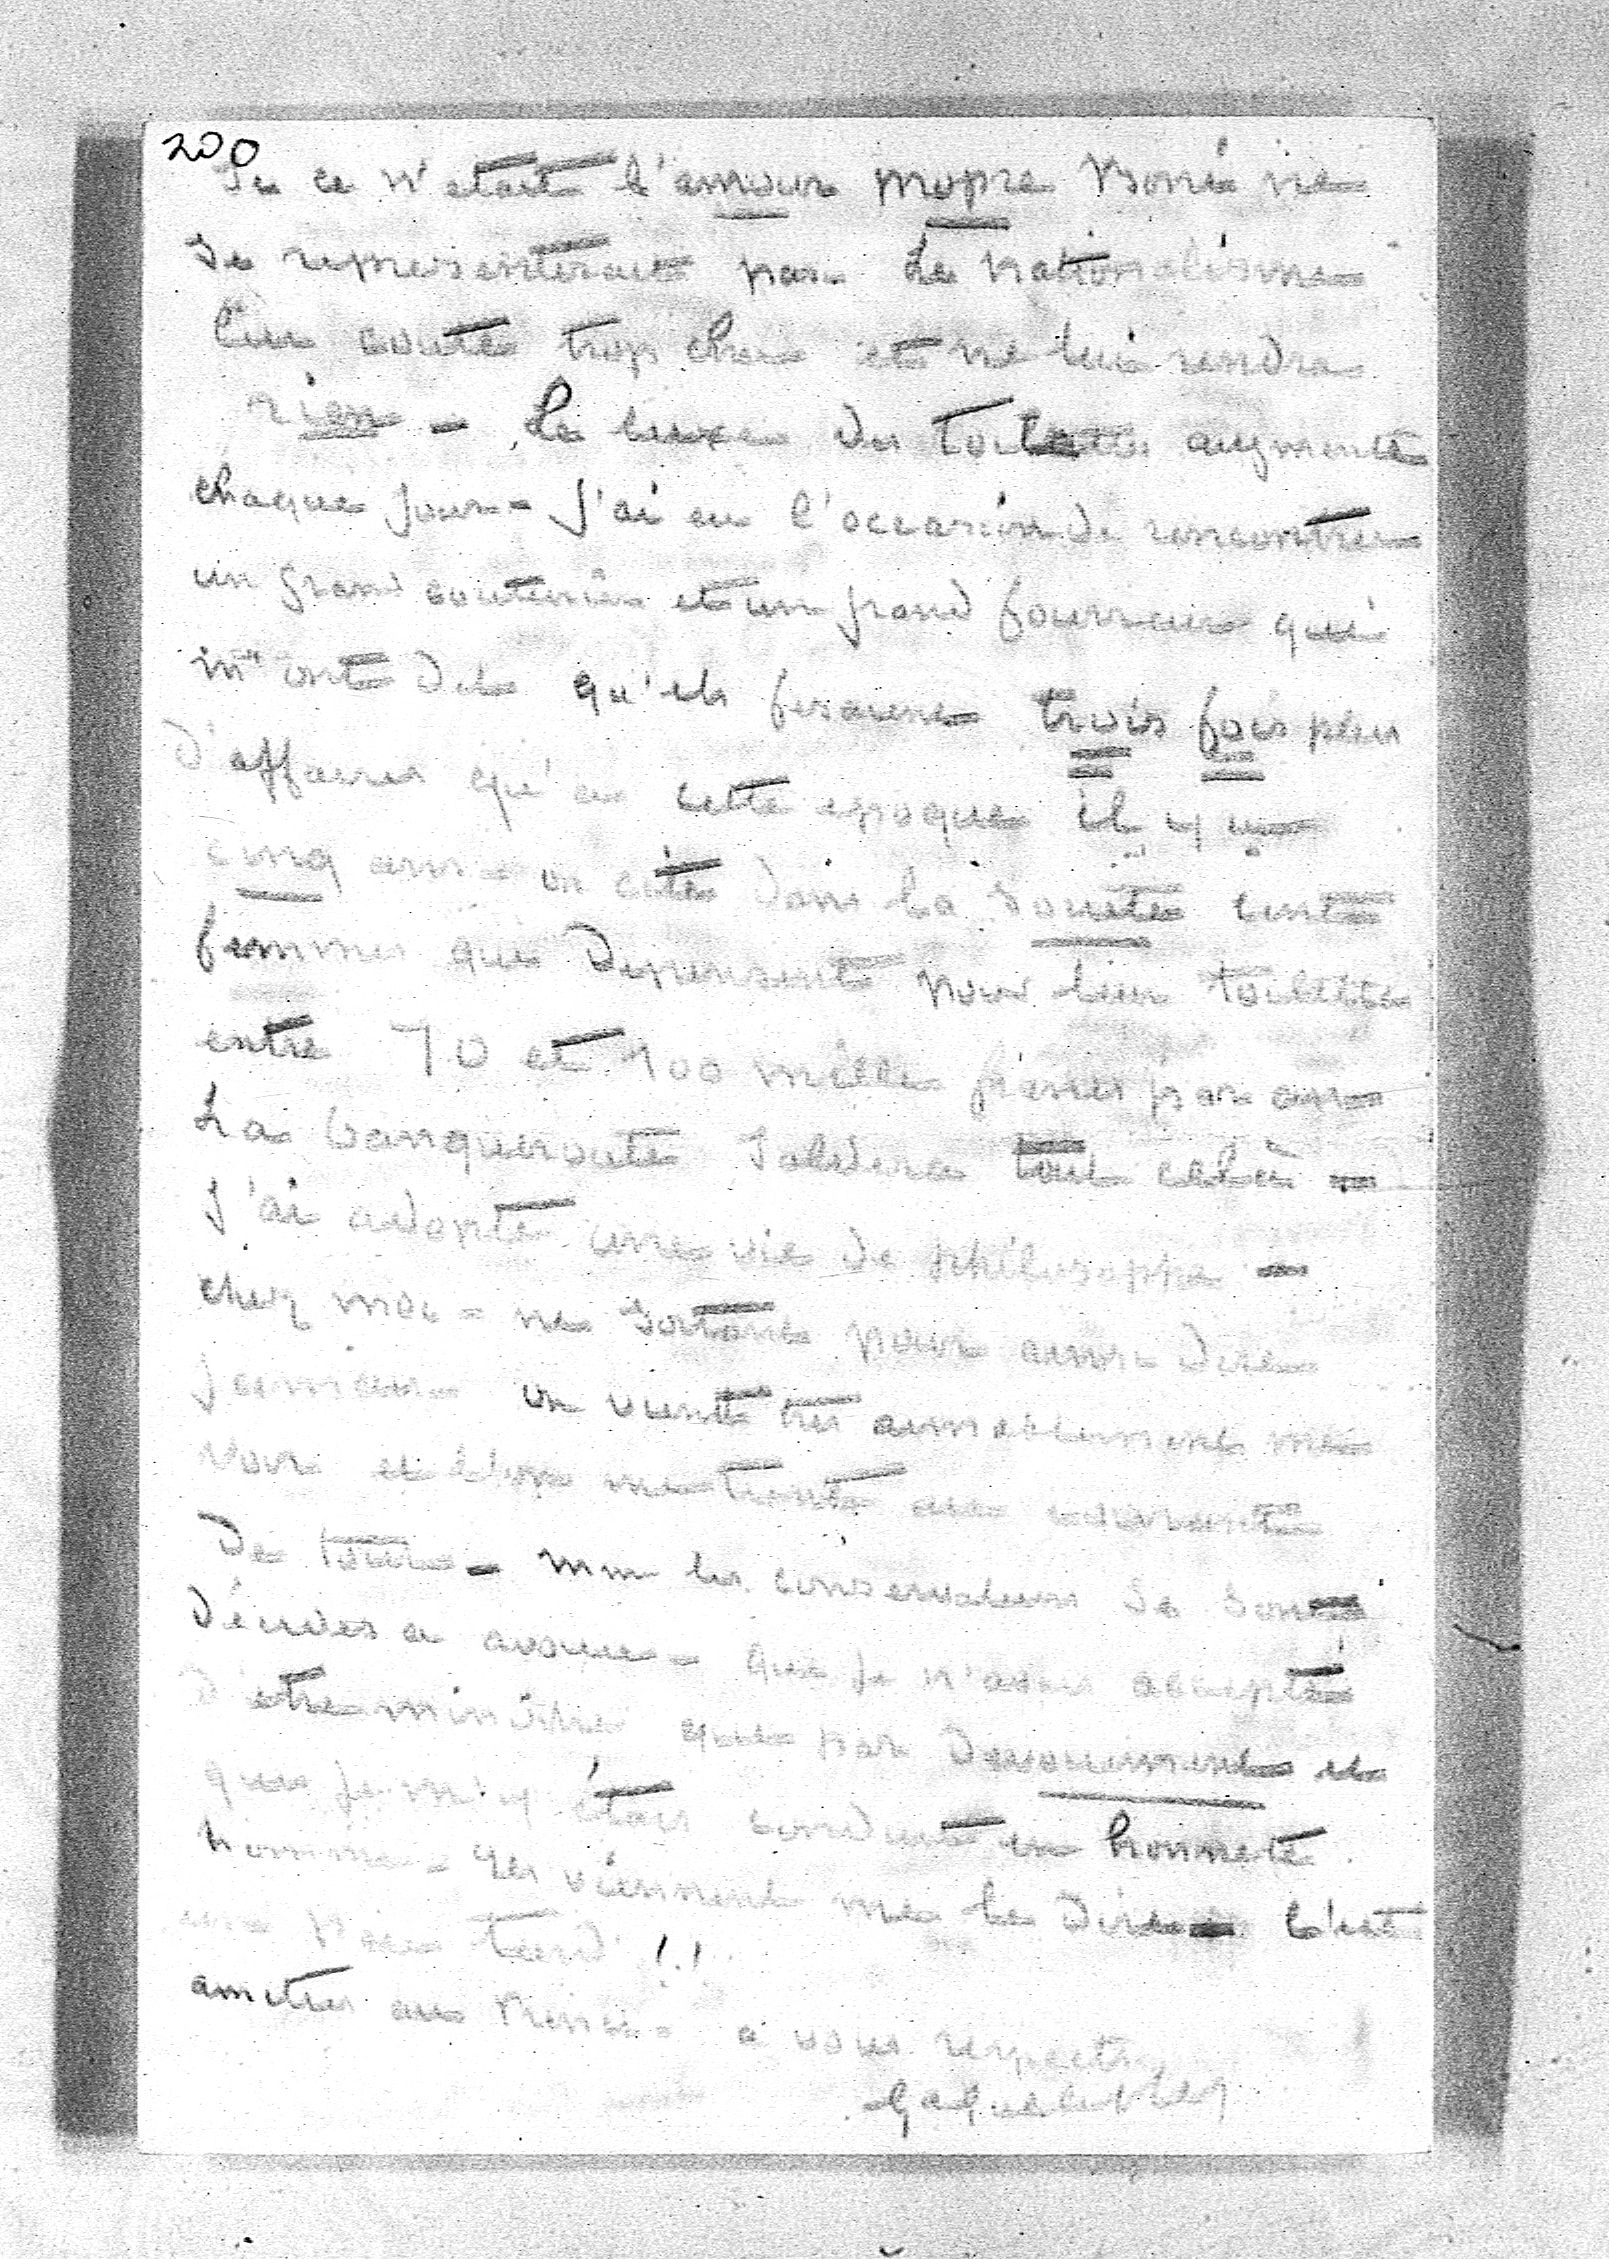 200
Si ce n'etait l'amour propre Boni ne
se representerait pas Le nationalisme
lui coute trop cher et ne lui rendra
rien - Le luxe des toilettes augmente
chaque jour - J'ai eu l'occasion de rencontrer
un grand couturier et un grand fourreur qui
m'ont dit qu'ils feraient trois fois plus
d'affaires qu'a cette epoque il y a
cinq ans - on cite dans la societé cent
femmes qui depensent pour leur toilette
entre 70 et 100 mille francs par an -
La banqueroute soldera tout cela -
J'ai adopté une vie de philosophe -
chez moi - ne sortant pour ainsi dire
jamais on vient tres aimablement me
voir et l'on me traite avec
De tous - mm les conservateurs se sont
décidés a avouer - que je n'avais accepté
d'etre ministre que par devouement et
que je m'y étais conduit en honnete
homme - Ils viennent me le dire - c'est
un peu tard !!
amities au Prince - a vous respects
Galliffet